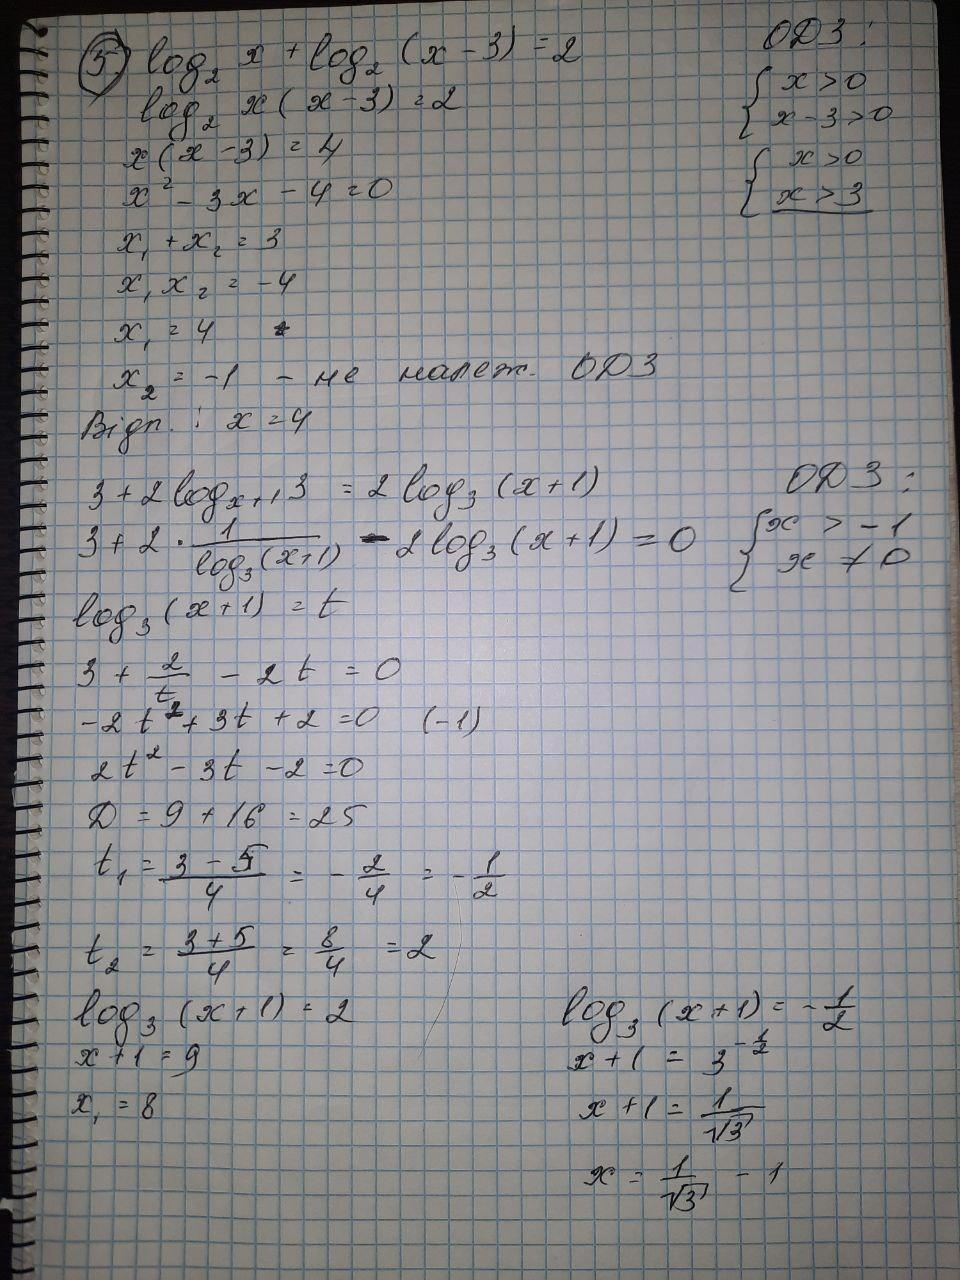 5 log₂ x + log₂ (x - 3) = 2
ОДЗ:
log₂ x(x - 3) = 2
{ x > 0
x - 3 > 0
x(x - 3) = 4
x² - 3x - 4 = 0
{ x > 0
x > 3
x₁ + x₂ = 3
x₁ x₂ = -4
x₁ = 4
x₂ = -1 - не належ. ОДЗ
Відп.: x = 4
3 + 2 log_{x+1} 3 = 2 log₃ (x+1)
ОДЗ:
3 + 2 · 1/log₃(x+1) - 2 log₃ (x+1) = 0
{ x > -1
x ≠ 0
log₃ (x+1) = t
3 + 2/t - 2t = 0
-2t² + 3t + 2 = 0 (-1)
2t² - 3t - 2 = 0
D = 9 + 16 = 25
t₁ = (3 - 5)/4 = -2/4 = -1/2
t₂ = (3 + 5)/4 = 8/4 = 2
log₃ (x+1) = 2
x + 1 = 9
x₁ = 8
log₃ (x+1) = -1/2
x + 1 = 3^{-1/2}
x + 1 = 1/√3
x = 1/√3 - 1